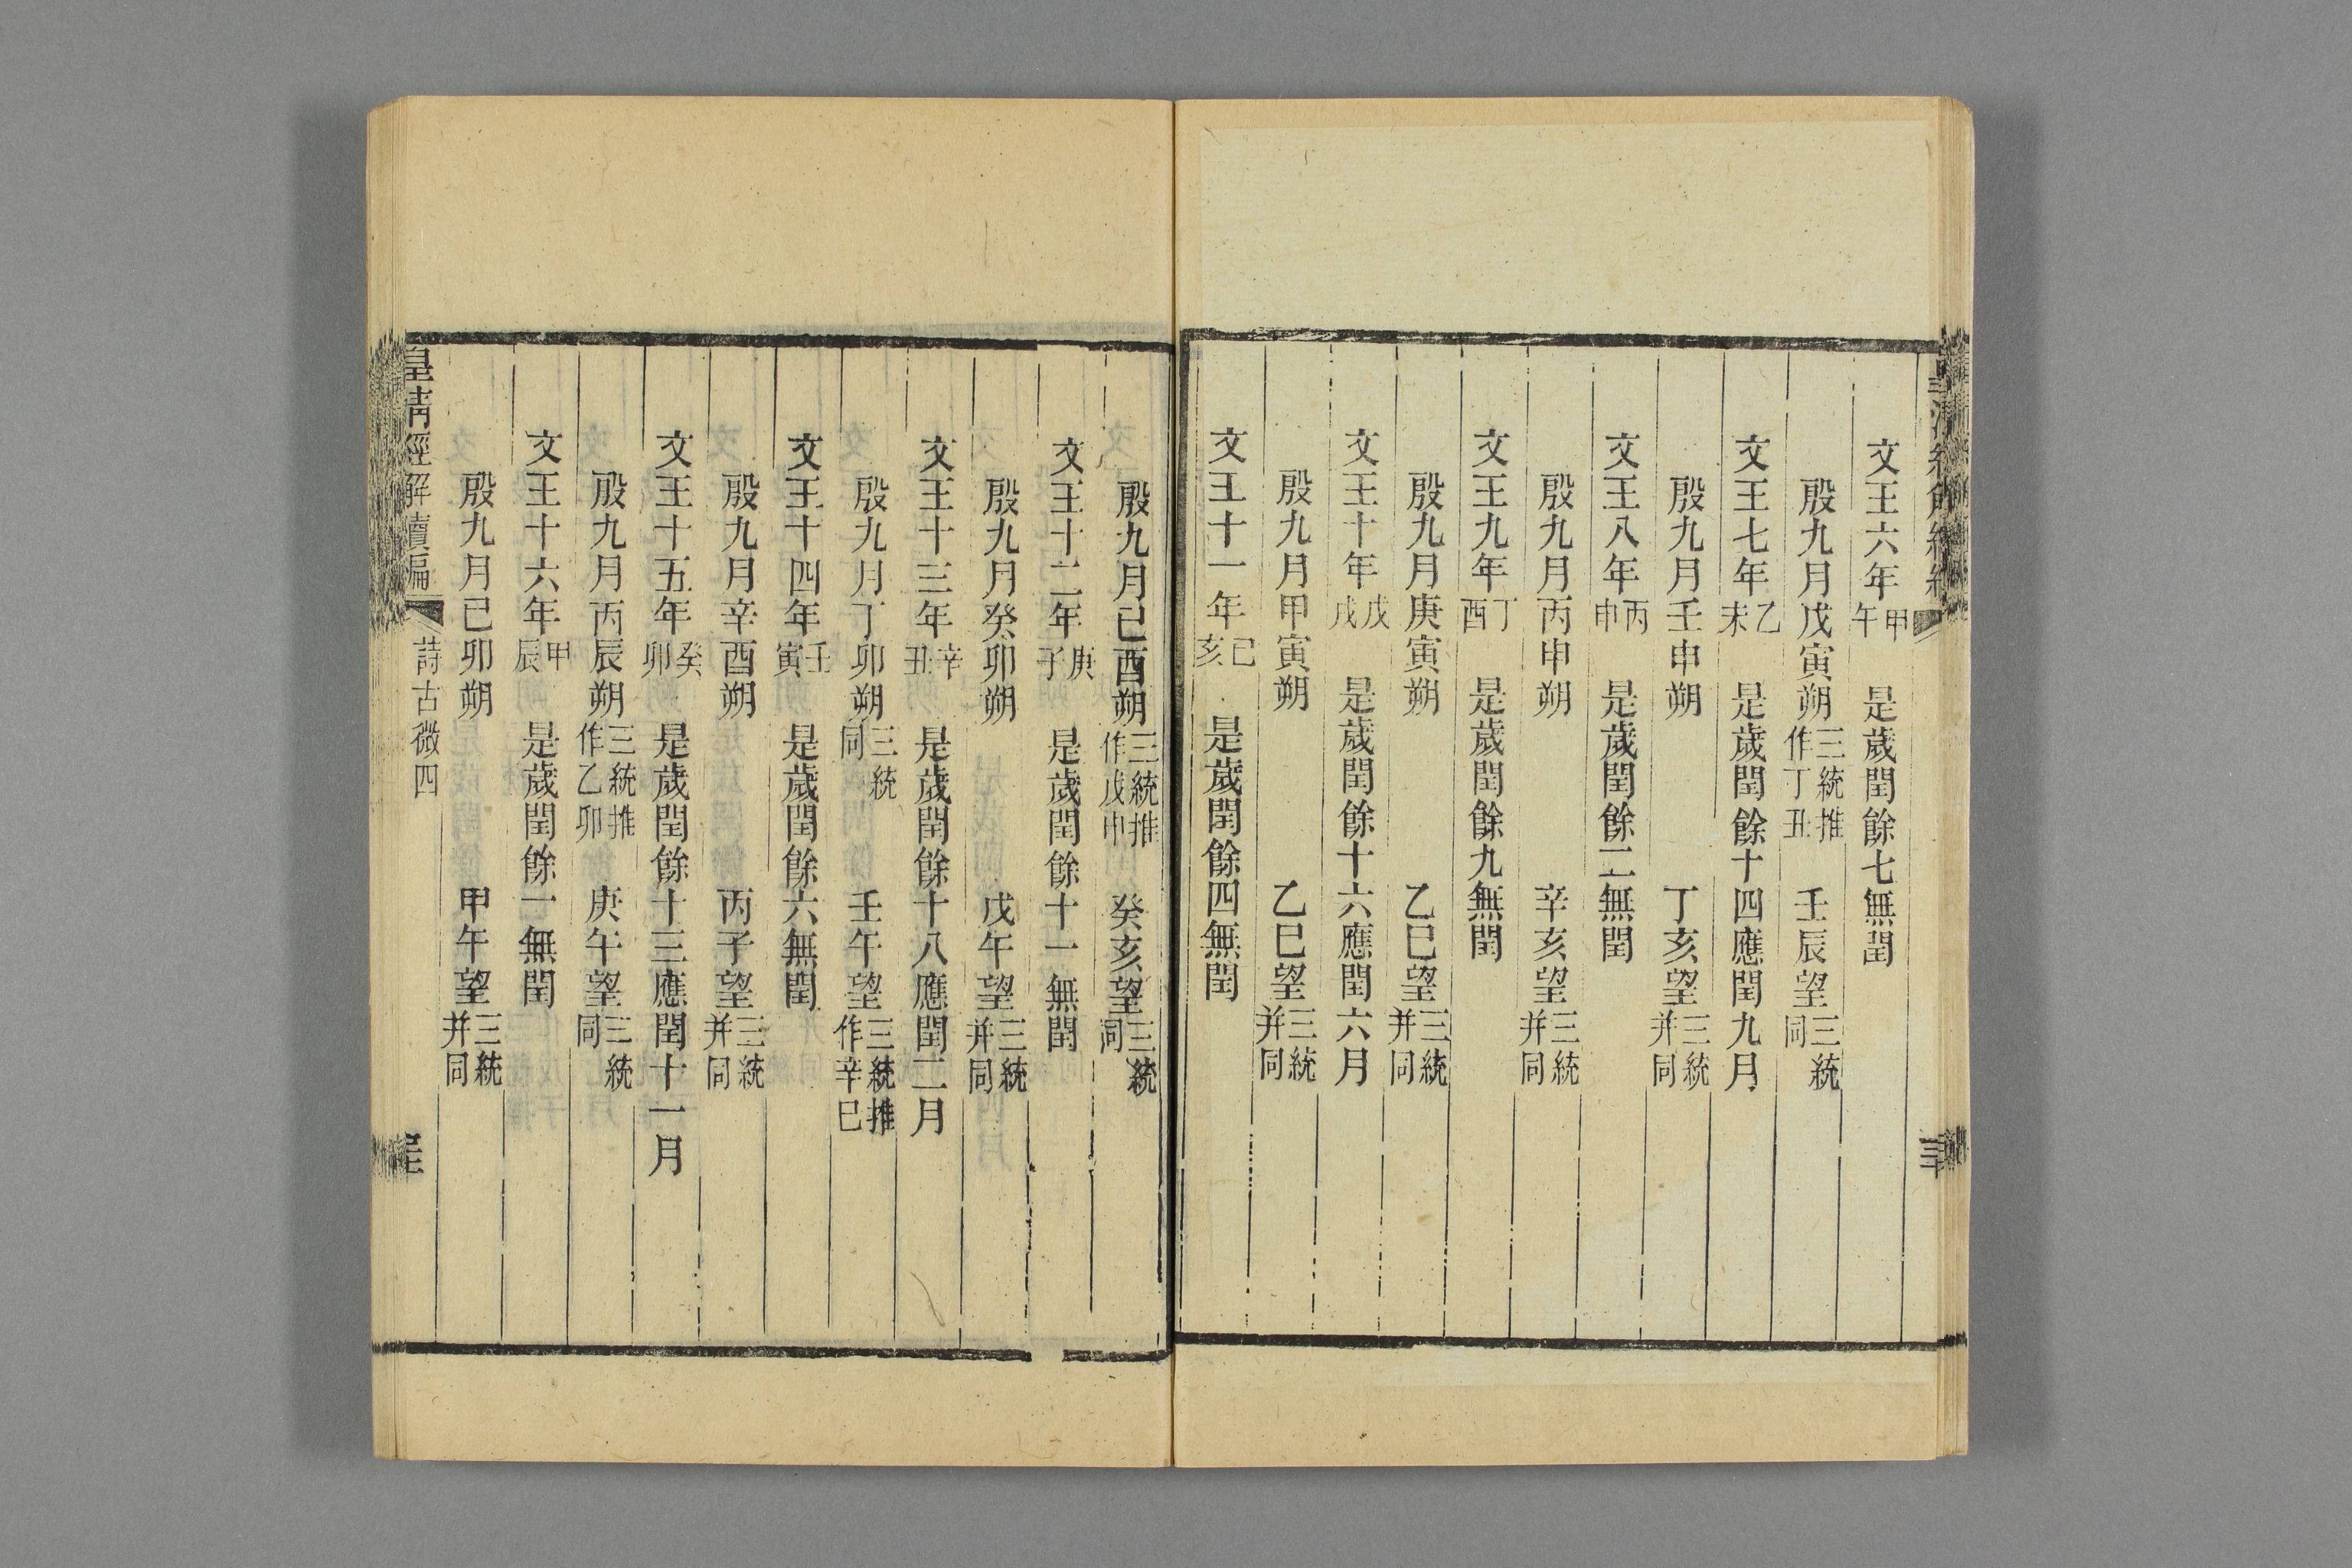 文王六年甲午　是歲閏餘七無閏
殷九月戊寅朔三統推作丁丑　壬辰望三統同
文王七年乙未　是歲閏餘十四應閏九月
殷九月壬申朔　丁亥望三統并同
文王八年丙申　是歲閏餘二無閏
殷九月丙申朔　辛亥望三統并同
文王九年丁酉　是歲閏餘九無閏
殷九月庚寅朔　乙巳望三統并同
文王十年戊戌　是歲閏餘十六應閏六月
殷九月甲寅朔　乙巳望三統并同
文王十一年己亥　是歲閏餘四無閏
殷九月己酉朔三統推作戊申　癸亥望三統同
文王十二年庚子　是歲閏餘十一無閏
殷九月癸卯朔　戊午望三統并同
文王十三年辛丑　是歲閏餘十八應閏二月
殷九月丁卯朔三統同　壬午望三統推作辛巳
文王十四年壬寅　是歲閏餘六無閏
殷九月辛酉朔　丙子望三統并同
文王十五年癸卯　是歲閏餘十三應閏十一月
殷九月丙辰朔三統推作乙卯　庚午望三統同
文王十六年甲辰　是歲閏餘一無閏
殷九月己卯朔　甲午望三統并同
皇清經解續編　詩古微四